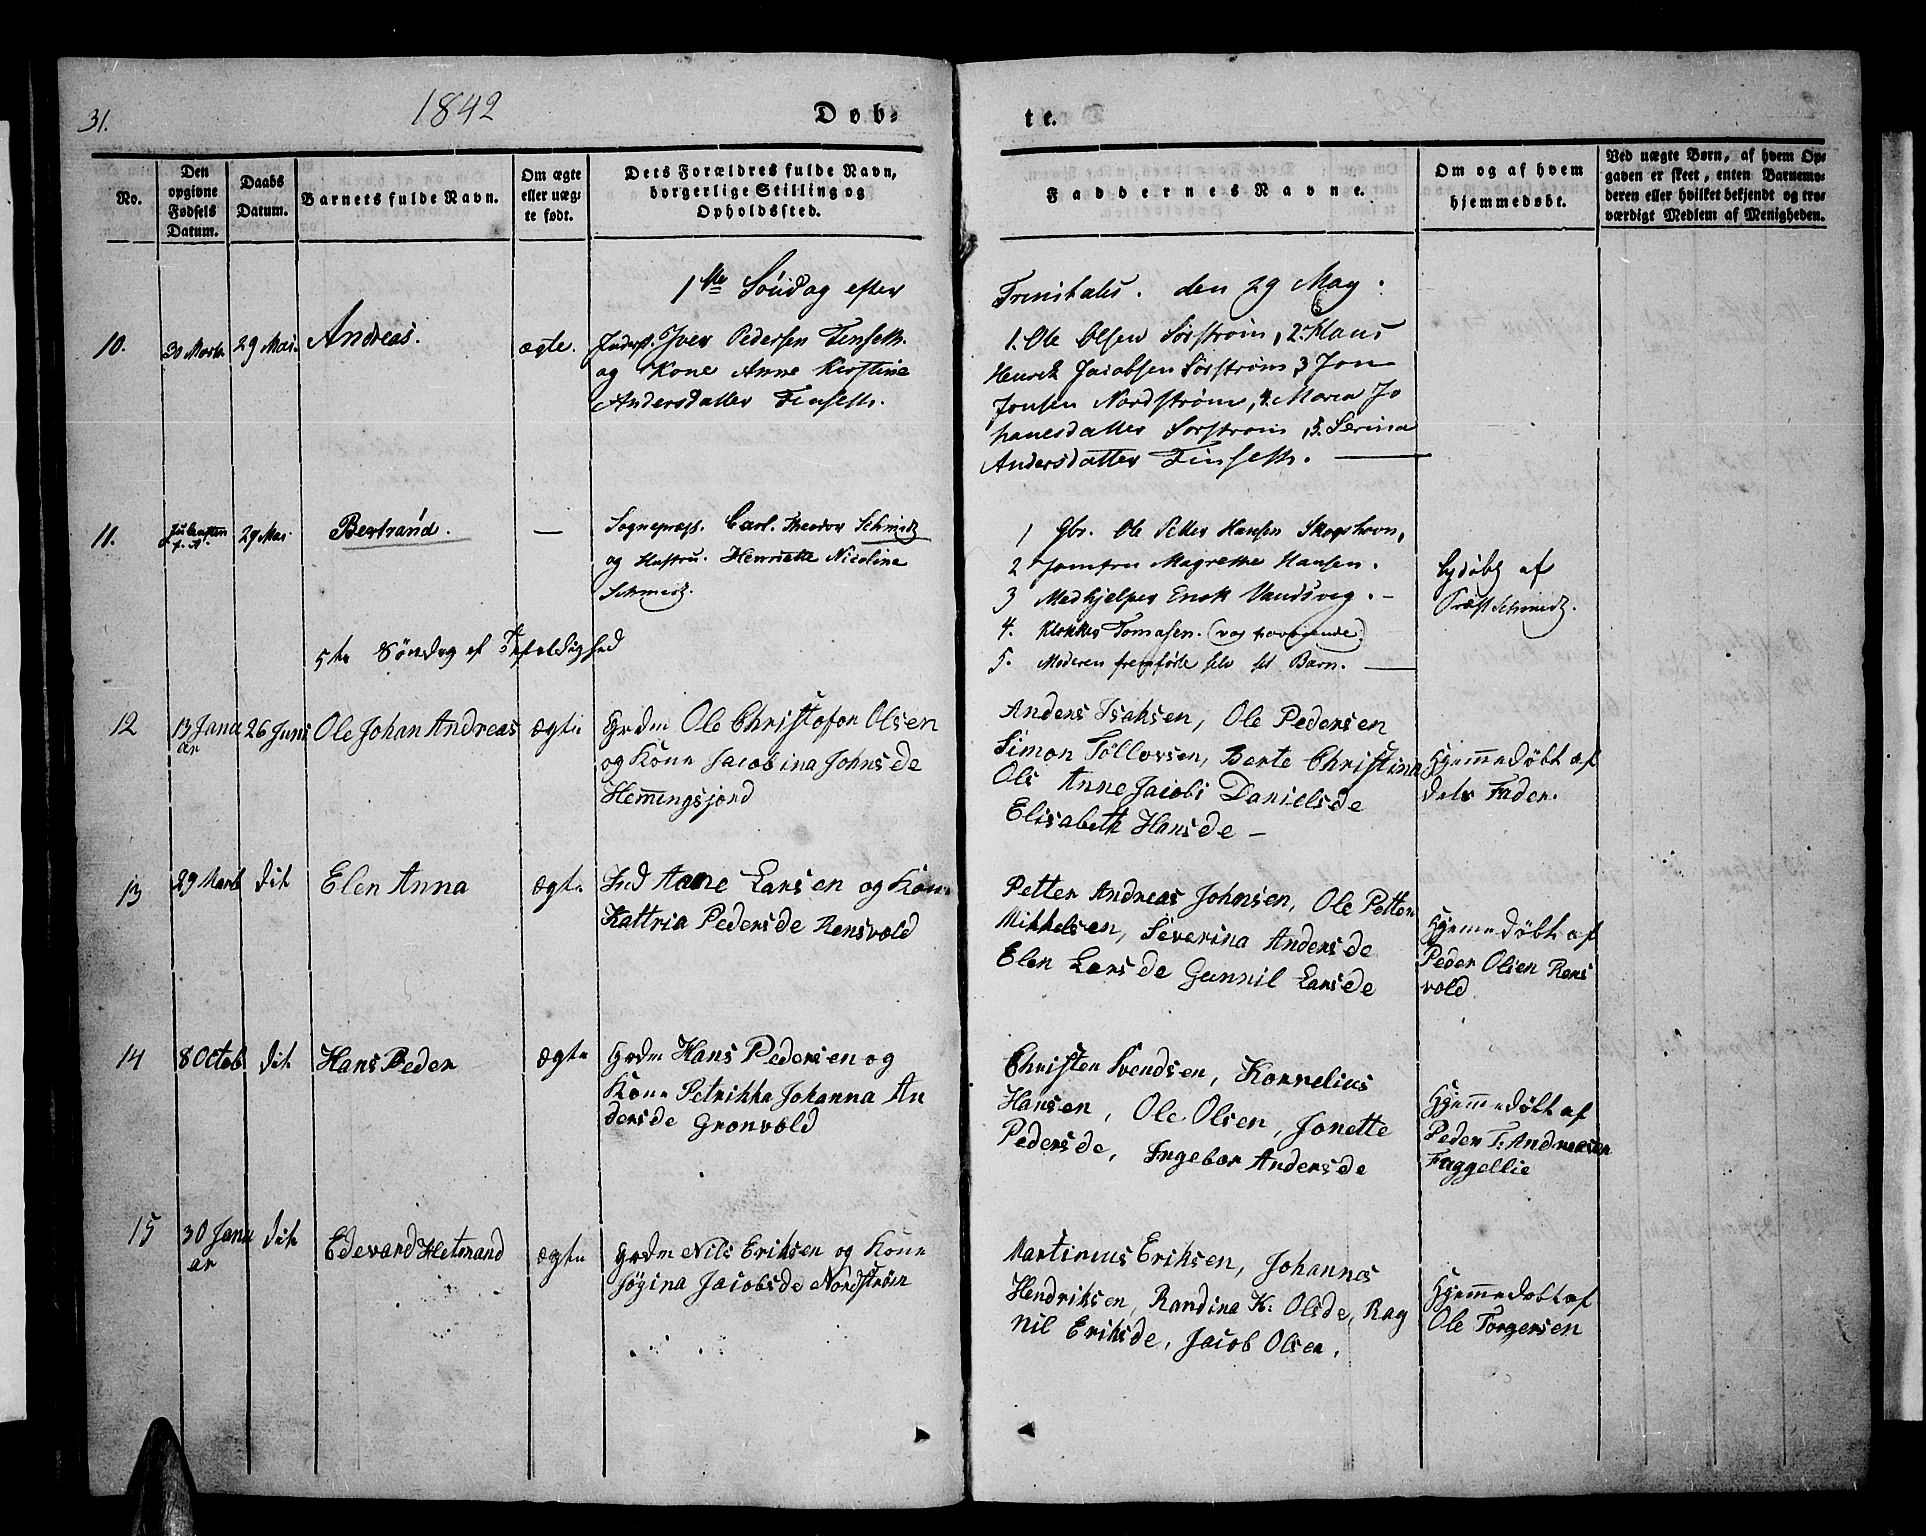 31.
1842
Døb-
te.
No.
Den
opgivne
Fødsels
Datum.
Daabs
Datum.
Barnets fulde Navn.
Om ægte
eller uæg-
te født.
Dets Forældres fulde Navn,
borgerlige Stilling og
Opholdssted.
Faddernes Navne.
Om og af hvem
hjemmedøbt.
Ved uægte Børn, af hvem Op-
gaven er skeet, enten Barnemo-
deren eller hvilket bekjendt og tro-
værdigt Medlem af Menigheden.
1ste Søndag efter
Trinitatis. den 29 May.
10.
30 Marts
29 Mai.
Andreas.
ægte.
Inderst. Iver Pedersen Finseth.
og Kone Anne Kirstine
Andersdatter Finseth.
1. Ole Olsen Sørstrøm, 2. Klaus
Henrik Jacobsen Sørstrøm, 3 Jon
Jonsen Nordstrøm, 4. Maren Jo
hanesdatter Sørstrøm, 5. Serina
Andersdatter Finseth.
11.
29 Mai.
Bertrand.
—
Sognepræst. Carl Theodor Schmidt
og Hustru. Henriette Nicoline
Schmidt.
1 Gbr. Ole Petter Hansen Skogshavn,
2 Jomfru Magrethe Hansen.
3 Medhjelper Enok Vandsveg.
4. Klokker Tomasen.
5. Moderen fremførte selv sit Barn.
af
Præst Schmidt.
5te Søndag ef Trefoldighed
12
13 Janu
ar
26 Juni
Ole Johan Andreas
Ægte
Grdm Ole Christofor Olsen
og Kone Jacobina Johnsde
Hemmingsjord
Anders Isaksen, Ole Pedersen
Simon Tollovsen, Berte Christina
Ols Anne Jacobi Danielsde
Elisabeth Hansde —
Hjemmedøbt af
dets Fader.
13
29 Marts
dit
Elen Anna
Ægte
Ind Aane Larsen og Kone
Kattria Pedersde Rensvold
Petter Andreas Johnsen, Ole Petter
Mikkelsen, Severina Andersde
Elen Larsde Gunnil Larsde
Hjemmedøbt af
Peder Olsen Rens
vold
14
8 Octob
dit
Hans Peder
Ægte
Grdm Hans Pedersen og
Kone Petrikka Johanna An
dersde Gronvold
Christen Svendsen, Kornelius
Hansen, Ole Olsen, Jonette
Pedersde, Ingebor Andersde
Hjemmedøbt af
Peder T: Andreasen
Faggellie
15
30 Janu
ar
dit
Edevard Hetmand
Ægte
Grdm Nils Eriksen og Kone
Jøgina Jacobsde Nordstrøm
Martinus Eriksen, Johannes
Hendriksen, Randina K: Olsde, Rag
nil Eriksde, Jacob Olsen.
Hjemmedøbt af
Ole Torgersen